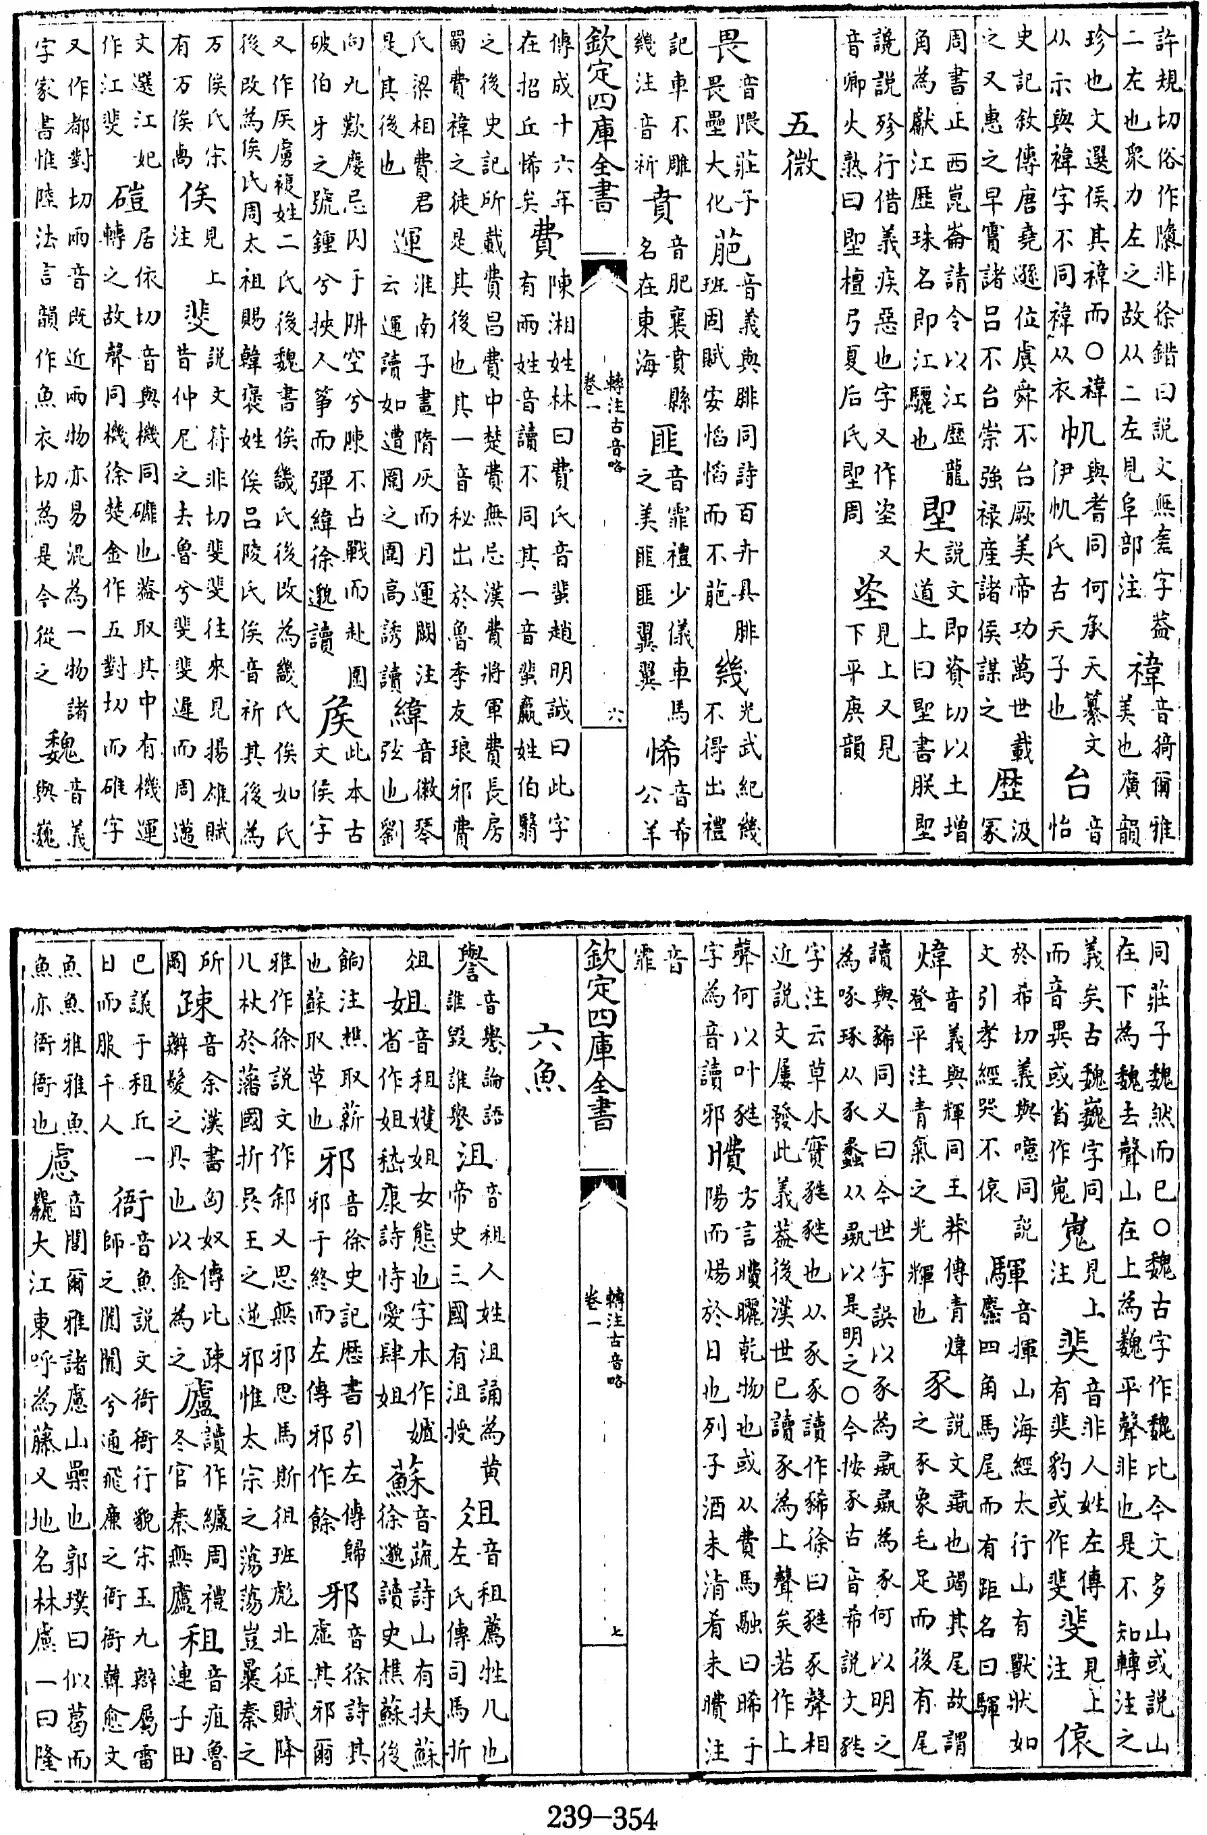 許規切俗作隳非徐鍇曰說文無字葢二左也衆力左之故从二左見阜部注 禕音猗爾雅美也廣韻
珍也文選侯其禕而○禕从示與褘字不同褘从衣 帆與耆同何承天纂文伊帆氏古天子也 台音怡
史記敘傳唐堯遜位虞舜不台厥美帝功萬世載之又惠之早霣諸呂不台崇強祿産諸侯謀之 歴汲冢
周書正西崑崙請令以江歴龍角為獻江歴珠名即江驪也 堲說文即資切以土增大道上曰堲書朕堲
讒説殄行借義疾惡也字又作垐又音卿火熟曰堲檀弓夏后氏堲周 垐見上又見下平庚韻
五微
畏音隈莊子畏壘大化 萉音義與腓同詩百卉具腓班固賦安慆慆而不萉 幾光武紀幾不得出禮
記車不雕幾注音祈 賁音肥襄賁縣名在東海 匪音霏禮少儀車馬之美匪匪翼翼 悕音希公羊
欽定四庫全書 轉注古音略 卷一 六
傳成十六年在招丘悕矣 費陳湘姓林曰費氏音蜚趙明誠曰此字有兩姓音讀不同其一音蜚嬴姓伯翳
之後史記所載費昌費中楚費無忌漢費將軍費長房蜀費禕之徒是其後也其一音秘出於魯季友琅邪費
氏梁相費君是其後也 運淮南子畫隋灰而月運闕注云運讀如遭圍之圍高誘讀 緯音徽琴弦也劉
向九歎慶忌囚于阱空兮陳不占戰而赴圍破伯牙之號鍾兮挾人箏而彈緯徐邈讀 矦此本古文侯字
又作虜複姓二氏後魏書俟畿氏後改為幾氏俟如氏後改為俟氏周太祖賜韓褒姓俟呂陵氏俟音祈其後為
万俟氏宋有万俟卨 俟見上注 斐説文符非切斐斐往來見揚雄賦昔仲尼之去魯兮斐斐遲而周邁
文選江妃作江斐 磑居依切音與機同磑也葢取其中有機運轉之故聲同機徐楚金作五對切而磑字
又作都對切兩音既近兩物亦易混為一物諸字家書惟陸法言韻作魚衣切為是今從之 魏音義與巍
同莊子魏然而已○魏古字作巍比今文多山或説山在下為魏去聲山在上為巍平聲非也是不知轉注之
義矣古魏巍字同而音異或省作嵬 嵬見上注 裴音非人姓左傳有裴豹或作斐 斐見上注 偯
於希切義與噫同説文引孝經哭不偯 驒音揮山海經太行山有獸狀如麢四角馬尾而有距名曰驒
煒音義與輝同王莽傳青煒登平注青氣之光輝也 豕説文彘也竭其尾故謂之豕象毛足而後有尾
讀與豨同又曰今世字誤以豕為彘彘為豕何以明之為啄琢从豕蠡从彘以是明之○今按豕古音希説文豨
字注云草木實豨豨也从豕豕讀作豨徐曰豨豕聲相近説文屢發此義葢後漢世已讀豕為上聲矣若作上
聲何以叶豨字為音讀邪 䁎方言䁎曬乾物也或从費馬融曰晞于陽而煬於日也列子酒未清肴未䁎注
音霏
欽定四庫全書 轉注古音略 卷一 七
六魚
譽音舉論語誰毀誰舉 沮音租人姓沮誦為黄帝史三國有沮授 俎音租薦牲几也左氏傳司馬折
俎 姐音租㜘姐女態也字本作嫭省作姐嵇康詩恃愛肆姐 蘇音疏詩山有扶蘇徐邈讀史樵蘇後
餉注樵取薪也蘇取草也 邪音徐史記歴書引左傳歸邪于終而左傳邪作餘 邪音徐詩其虛其邪爾
雅作徐説文作䣄又思無邪思馬斯徂班彪北征賦降几杖於藩國折吳王之逆邪惟太宗之蕩蕩豈曩秦之
所圖 疎音余漢書匈奴傳比疎辮髮之具也以金為之 廬讀作纑周禮冬官秦無廬 租音疽魯連子田
巴議于租丘一日而服千人 衙音魚説文衙衙行貌宋玉九辯屬雷師之闐闐兮通飛廉之衙衙韓愈文
魚魚雅雅魚魚亦衙衙也 慮音閭爾雅諸慮山櫐也郭璞曰似葛而麤大江東呼為藤又地名林慮一曰隆
239-354